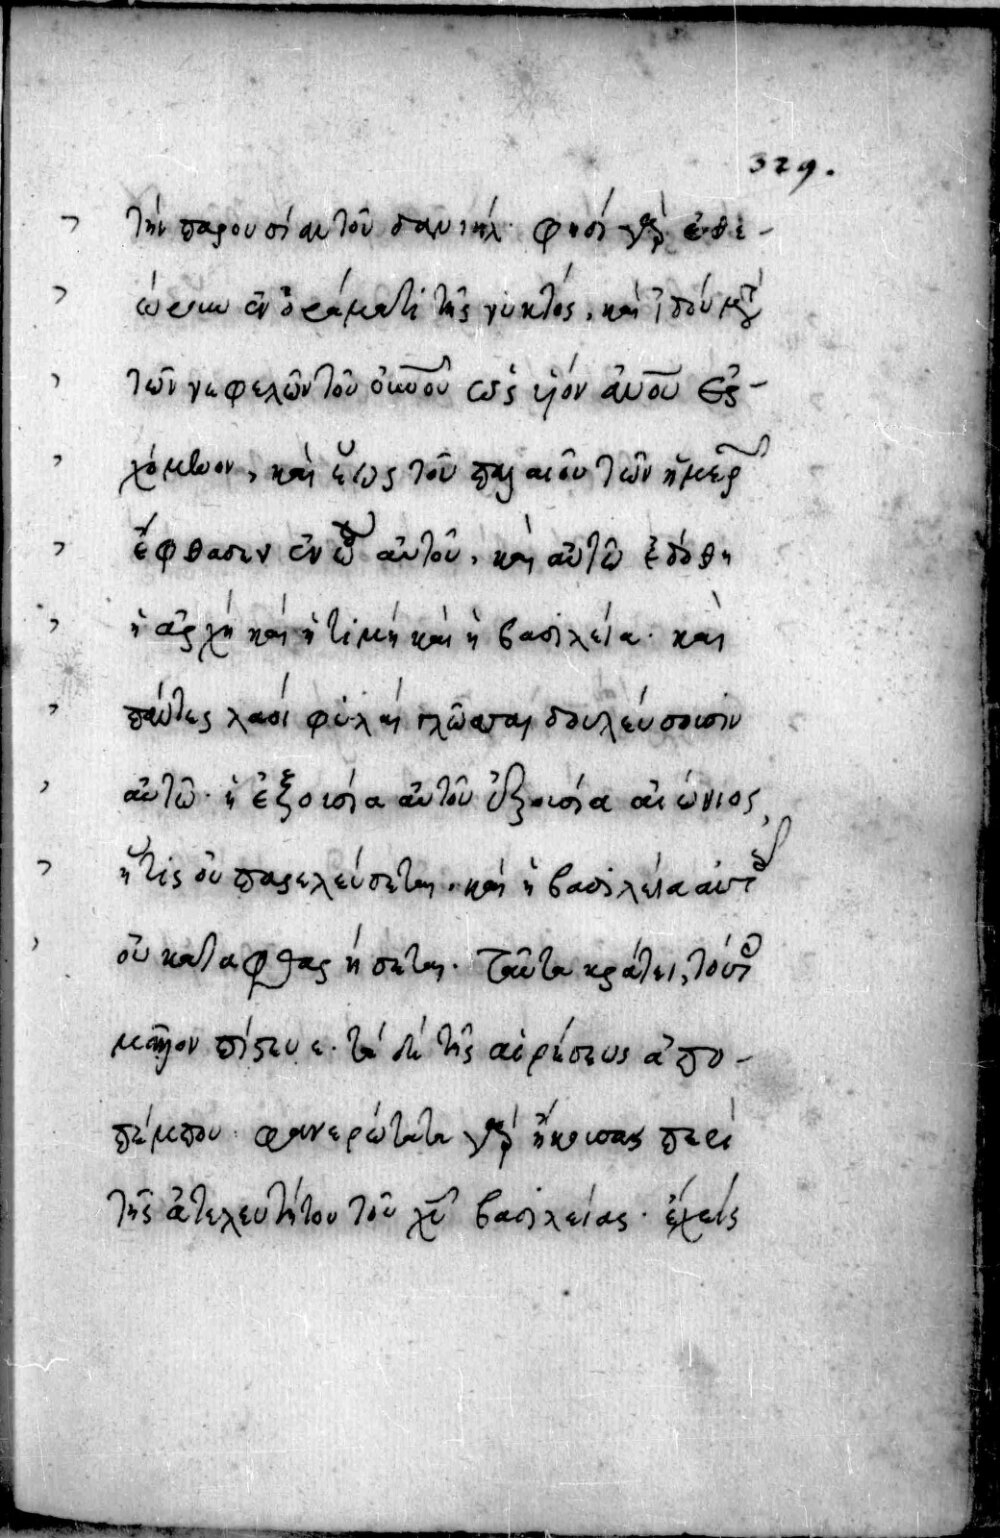 329.
τὴν παρουσίαν τοῦ δανιήλ· φησὶ γὰρ ἐθε-
ώρουν ἐν ὁράματι τῆς νυκτὸς, καὶ ἰδοὺ μετὰ
τῶν νεφελῶν τοῦ οὐνοῦ ὡς υἱὸν ἀνοῦ ἐρ-
χόμενον, καὶ ἕως τοῦ παλαιοῦ τῶν ἡμερῶν
ἔφθασεν αὐτοῦ, καὶ αὐτῶ ἐδόθη
ἡ ἀρχὴ καὶ ἡ τιμὴ καὶ ἡ βασιλεία· καὶ
πάντες λαοὶ φυλαὶ γλῶσσαι δουλεύσουσιν
αὐτῶ· ἡ ἐξουσία αὐτοῦ ἐξουσία αἰώνιος,
ἥτις οὐ παρελεύσεται, καὶ ἡ βασιλεία αὐτοῦ
οὐ καταφθαρήσεται. ταῦτα κράτει, τούτοις
μᾶλλον πίστευε· τὰ δὲ τῆς αἱρέσεως ἀπο-
πέμπου· φανερώτατα γὰρ ἤκουσας περὶ
τῆς ἀτελευτήτου τοῦ χῦ βασιλείας· ἔχεις